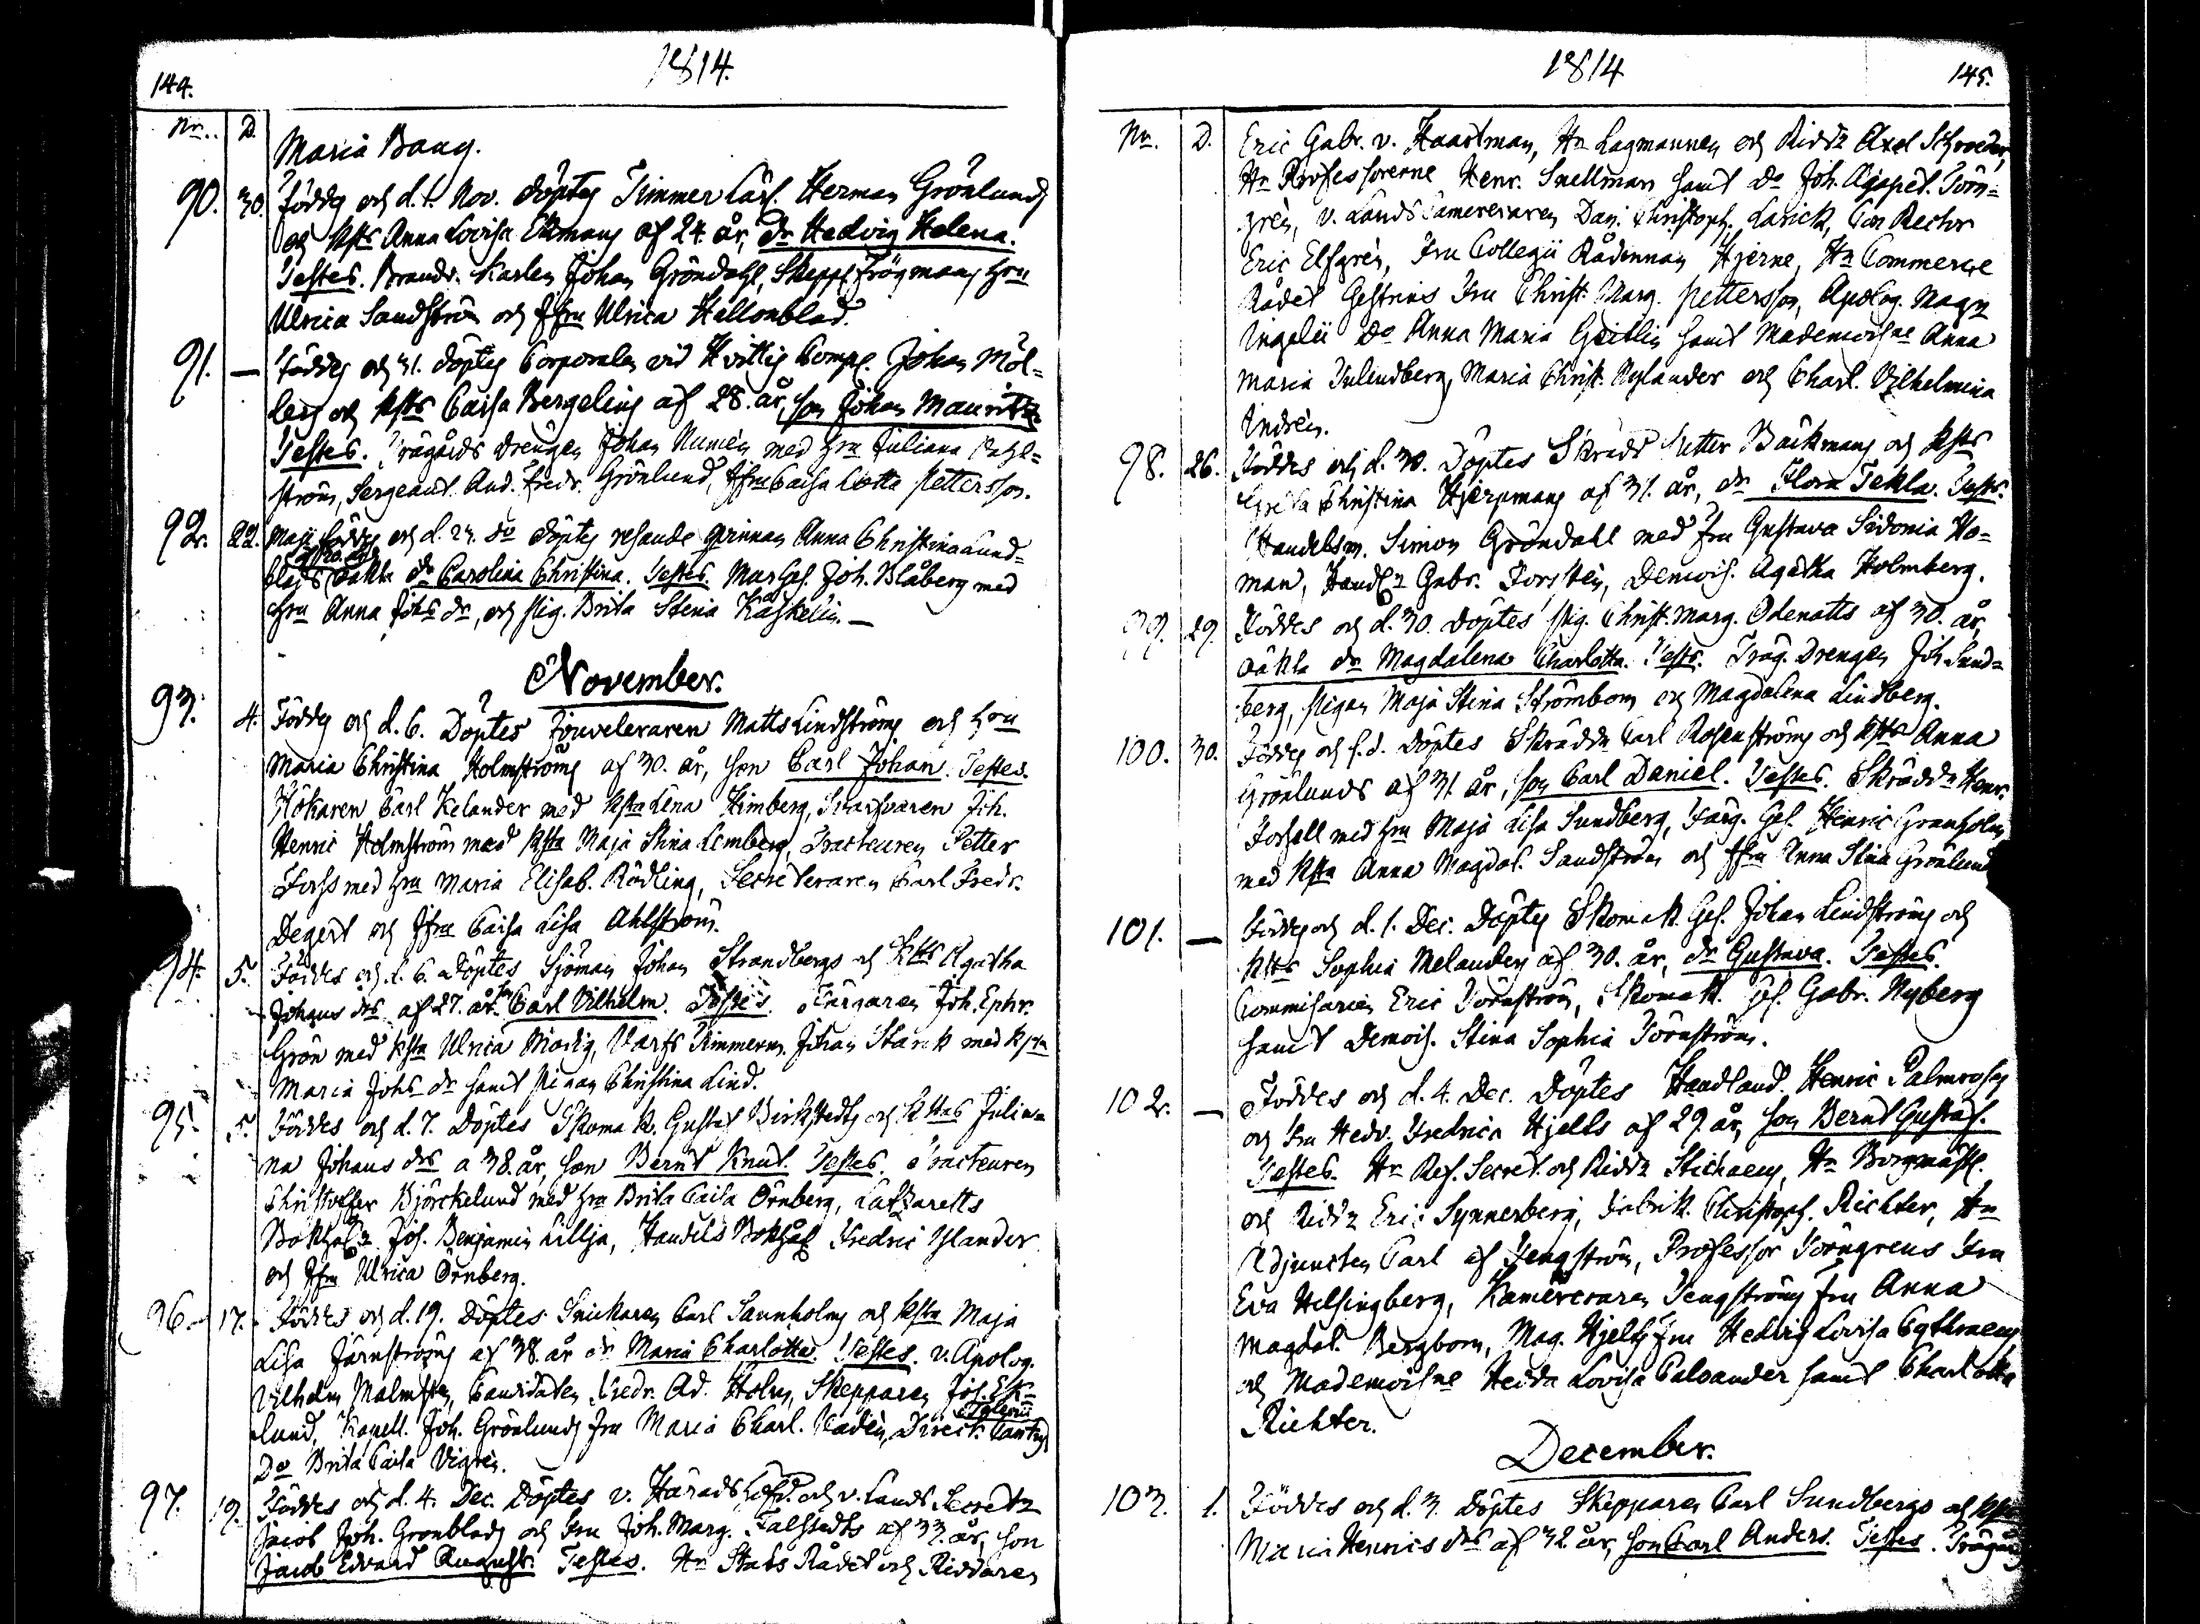 144.
1814.
Nr. D.
Maria Baug.
90. 30. Föddes och d. 1. Nov. döptes Timmer Carl. Herman Grönlunds
och hstr Anna Lovisa Ekmans af 24 år, dr Hedvig Helena.
Testes. Brands. Karlen Johan Gröndahl, Skepp. Trögman hru
Ulrica Sandström och Jfru Ulrica Hallonblad.
91. — Föddes och 31. döptes Corporalen vid Hvittis Comp. Johan Möl=
berg och hstr Caisa Bergelins af 28. år, son Johan Mauritz
Testes. Trägårds Drengen Johan Numén med hru Juliana
ström, Sergeant. And. Fredr. Grönlund, Jfru Caisa Lotta Pettersson.
92. 22. Maji föddes och d. 23. do döptes resande qvinnan Anna Christina Lund=
blads oäkta dr Carolina Christina. Testes. Mur Ges. Joh. Blåberg med
hru Anna Johs dr, och Pig. Brita Stina Käskelin. —
November.
93. 4. Föddes och d. 6. Döptes Jouveleraren Matts Lindströms och hru
Maria Christina Holmströms af 30. år, son Carl Johan. Testes.
Hökaren Carl Kelander med hsta Lena Himberg, Svarfvaren Joh.
Henric Holmström med hsta Maja Stina Limberg, Tracteuren Petter
Forss med hru Maria Elisab. Rödling, Secreteraren Carl Fredr.
Degert och Jfru Caisa Lisa Ahlström.
94. 5. Föddes och d. 6. Döptes Sjöman Johan Strandbergs och hstrs Agatha
Johans drs af 27. år son Carl Vilhelm. Testes. Färgaren Joh. Ephr.
Grön med hsta Ulrica Modig, Varfs Timmerm. Johan Stark med hsta
Maria Johs dr samt Pigan Christina Lind.
95. 5. Föddes och d. 7. Döptes Skomak. Gustaf Birkstedts och hstrs Julia=
na Johans drs a 38. år, son Bernt Knut. Testes. Tracteuren
Christoffer Björckelund med hru Brita Caisa Örnberg, Latzaretts
Bokhål. Joh. Benjamin Lillja, Handels Bokhål Fredric Ylander
och Jfru Ulrica Örnberg.
96. 17. Föddes och d. 19. Döptes Snickaren Carl Sannholms och hsta Maja
Lisa Järnströms af 38. år dr Maria Charlotta. Testes. v. Apolog.
Vilhelm Malmsten, Candidaten Fredr. Ad. Holm, Skepparen Joh. Ek=
lund, Kapell. Joh. Grönlunds fru Maria Charl. Vadén, Direct.
Do Brita Caisa Vigrén.
97. 19. Föddes och d. 4. Dec. Döptes v. Häradshöfd. och v. Lands Secret.
Jacob Joh. Gronblads och Fru Joh. Marg. Falstedts af 33. år, son
Jacob Edvard August. Testes. Hr Stats Rådet och Riddaren
1814
145.
Nr. D.
Eric Gabr. v. Haartman, Hr Lagmannen och Ridd. Axel Schroeder,
Hr Professorerne Henr. Snellman samt Do Joh. Agapet. Törn=
grén, v. Lands Camereraren Dan. Christoph. Larick, Con Rector
Eric Elfgrén, Fru Collegii Rådinnan Hjerne, Hr Commerce
Rådet Gestrins Fru Christ. Marg. Pettersson, Apolog. Mag.
Ingelii Do Anna Maria Geitlin samt Mademoislle Anna
Maria Julindberg, Maria Christ. Rylander och Charl. Vilhelmina
Andrén.
98. 26. Föddes och d. 30. Döptes Skrädd Petter Bäckmans och hstrs
Greta Christina Hjerpmans af 31. år, dr Flora Tekla. Test.
Handelsm. Simon Gröndahl med fru Gustava Sidonia Ho=
man, Handl. Gabr. Forstén, Demois. Agatha Holmberg.
99. 29. Föddes och d. 30. Döptes Pig. Christ. Marg. Odenatts af 30. år,
oäkta dr Magdalena Charlotta. Test. Träg. Drengen Joh. Sund=
berg, Pigan Maja Stina Strömbom och Magdalena Lindberg.
100. 30. Föddes och s. d. Döptes Skräddr Carl Rosenströms och hstrs Anna
Grönlunds af 31. år, son Carl Daniel. Testes. Skräddr Henr.
Forsell med hru Maja Lisa Sundberg, Färg. Ges. Henric Granholm
med hsta Anna Magdal. Sandström och Jfru Anna Stina Grönlund
101. — Föddes och d. 1. Dec. Döptes Skomak. Ges. Johan Lindströms och
hstrs Sophia Melanders af 30. år, dr Gustava. Testes.
Commisarien Eric Törnström, Skomak. Ges. Gabr. Nyberg
samt Demois. Stina Sophia Törnström.
102. — Föddes och d. 4. Dec. Döptes Handland. Henric Palmroses
och Fru Hedv. Fredrica Hjelts af 29 år, son Bernt Gustaf.
Testes. Hr Ref. Secret. och Riddr Stichaeus, Hr Borgmäst.
och Riddr Eric Synnerberg, Fabrik. Christoph. Richter, Hr
Adjuncten Carl af Tengström, Professor Törngrens Fru
Eva Helsingberg, Kamereraren Tengströms fru Anna
Magdal. Bergbom, Mag. Hjelts fru Hedvig Lovisa Cythraeus
och Mademoislle Hedda Lovisa Calvander samt Charlotta
Richter.
December.
103. 1. Föddes och d. 3. Döptes Skepparen Carl Sundbergs och hst
Maria Henrics drs af 32 år, son Carl Anders. Testes. Trägårds